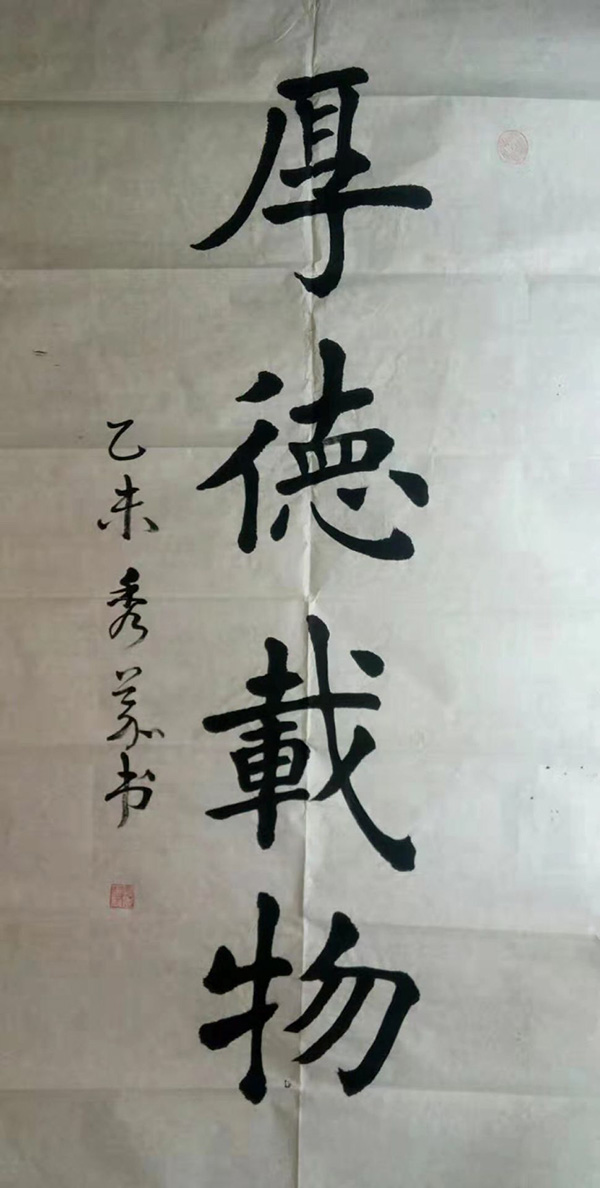 厚德載物
乙未 秀
书